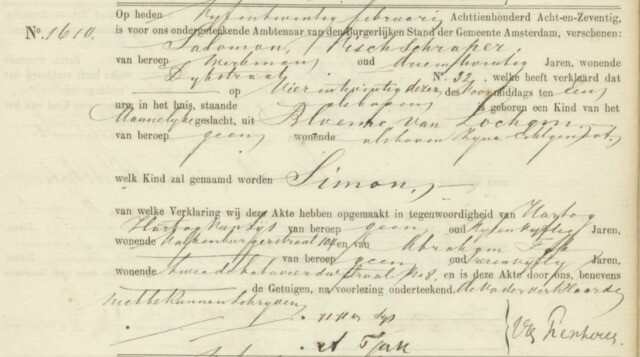 Op heden Vyfentwintig februarij Achttienhonderd Acht-en-Zeventig,
N.º 1610. is voor ons ondergeteekende Ambtenaar van den Burgerlijken Stand der Gemeente Amsterdam, verschenen:
Salomon Vischschraper,
van beroep Werkman oud Jaren, wonende
Dykstraat N.º 32. welke heeft verklaard dat
op Vier intwintig dezer des Voormiddags ten een
ure, in het huis, staande alsboven is geboren een Kind van het
Mannelijke geslacht, uit Bloeme van Lochem,
van beroep geen wonende alsboven zyne Echtgenoot.
welk Kind zal genaamd worden Simon,
van welke Verklaring wij deze Akte hebben opgemaakt in tegenwoordigheid van Hartog
Hartog van beroep geen oud Jaren,
wonende Valkenburgerstraat 104 en van Abraham
van beroep geen oud Jaren,
wonende straat N.º 8, en is deze Akte door ons, benevens
de Getuigen, na voorlezing onderteekend. de Vader verklaarde
niet te kunnen schryven